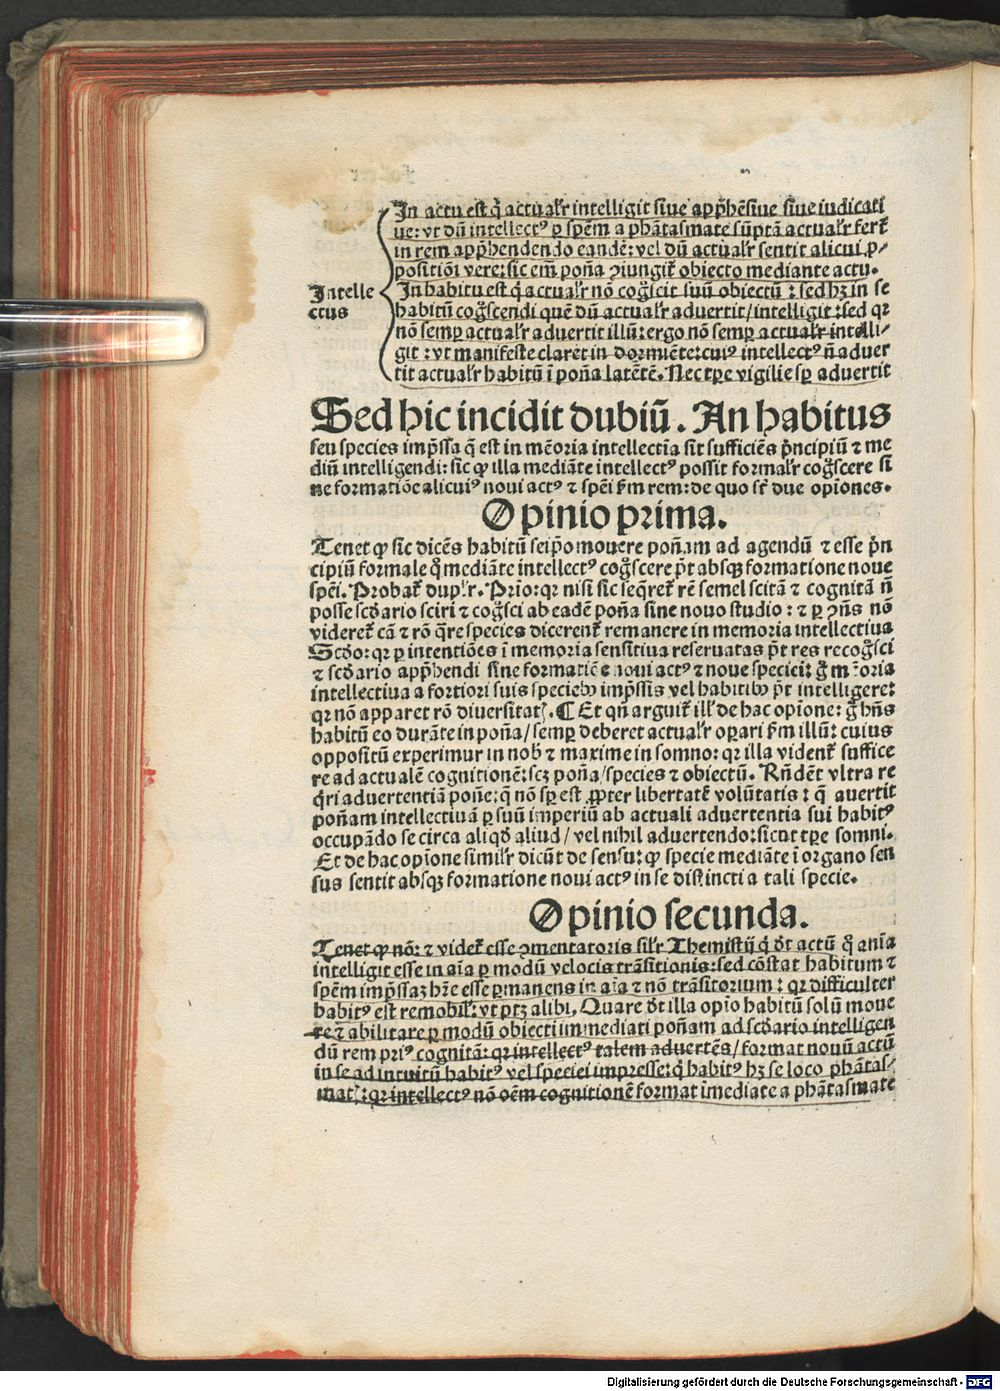 In actu est q̄ actualr̄ intelligit siue apprehēsiue siue iudicati
ue: vt dū intellectꝰ ꝑ spēm a phātasmate sūptā actualr̄ fert̄
in rem apphendendo eandē: vel dū actualr̄ sentit alicui ꝓ-
positiōi vere: sic em̄ poñа ꝯiungit̄ obiecto mediante actu.
Intelle
ctus
In habitu est q̄ actualr̄ nō cog̃scit suū obiectū : sed hꝫ in se
habitū cog̃scendi quē dū actualr̄ aduertit/intelligit: sed qꝛ
nō semꝑ actualr̄ aduertit illū: ergo nō semꝑ actualr̄ intelli-
git : vt manifeste claret in dormiēte: cuiꝰ intellectꝰ ñ aduer
tit actualr̄ habitū ī poña latētē. Nec tꝑe vigilie sꝑ aduertit
Sed hic incidit dubiū. An habitus
seu species imp̄ssa q̄ est in mēoria intellectīa sit sufficiēs pͥncipiū ⁊ me
diū intelligendi: sic ꝙ illa mediāte intellectꝰ possit formalr̄ cog̃scere si
ne formatiōe alicuiꝰ noui actꝰ ⁊ spēi fm̄ rem: de quo st̄ due opīones.
Opinio prima.
Tenet ꝙ sic dicēs habitū seip̄o mouere poñam ad agendū ⁊ esse pͥn
cipiū formale q̊ mediāte intellectꝰ cog̃scere pōt absqꝫ formatione noue
spēi. Probat̄ duplr̄. Prīo: qꝛ nisi sic seq̄ret̄ rē semel scitā ⁊ cognitā ñ
posse scd̄ario sciri ⁊ cog̃sci ab eadē poña sine nouo studio : ⁊ ꝑ ꝯñs nō
videret̄ cā ⁊ rō q̄re species dicerent̄ remanere in memoria intellectiua
Scd̄o: qꝛ ꝑ intentiōes ī memoria sensitiua reseruatas pōt res recog̃sci
⁊ scd̄ario app̄hendi sine formatiōe noui actꝰ ⁊ noue speciei: g̊ memoria
intellectiua a fortiori suis speciebꝰ imp̄ssis vel habitibꝰ pōt intelligere:
qꝛ nō apparet rō diuersitatꝭ. ¶ Et qñ arguit̄ illꝭ de hac opīone: g̊ hñs
habitū eo durāte in poña/semꝑ deberet actualr̄ oꝑari fm̄ illū: cuius
oppositū experimur in nobꝭ ⁊ maxime in somno: qꝛ illa vident̄ suffice
re ad actualē cognitionē: scꝫ poña/species ⁊ obiectū. Rñdēt vltra re
q̇ri aduertentiā poñe: q̄ nō sꝑ est ꝓpter libertatē volūtatis : q̄ auertit
poñam intellectiuā ꝑ suū imperiū ab actuali aduertentia sui habitꝰ
occupādo se circa aliqd̄ aliud/ vel nihil aduertendo: sicut tꝑe somni.
Et de hac opīone similr̄ dicūt de sensu: ꝙ specie mediāte ī organo sen
sus sentit absqꝫ formatione noui actꝰ in se distincti a tali specie.
Opinio secunda.
Tenet ꝙ nō: ⁊ videt̄ esse ꝯmentatoris silr̄ Themistij q̇ dt̄ actū q̊ anīa
intelligit esse in aīa ꝑ modū velocis trāsitionis: sed cōstat habitum ⁊
spēm imp̄ssaꝫ hr̄e esse ꝑmanens in aīa ⁊ nō trāsitorium : qꝛ difficulter
habitꝰ est remobilꝭ: vt ptꝫ alibi. Quare dt̄ illa opio habitū solū moue
re ⁊ abilitare ꝑ modū obiecti immediati poñam ad scd̄ario intelligen
dū rem priꝰ cognitā: qꝛ intellectꝰ talem aduertēs/format nouū actū
in se ad intuitū habitꝰ vel speciei impresse: q̇ habitꝰ hꝫ se loco phātas-
matꝭ: qꝛ intellectꝰ nō oēm cognitionē format īmediate a phātasmate
Digitalisierung gefördert durch die Deutsche Forschungsgemeinschaft - DFG